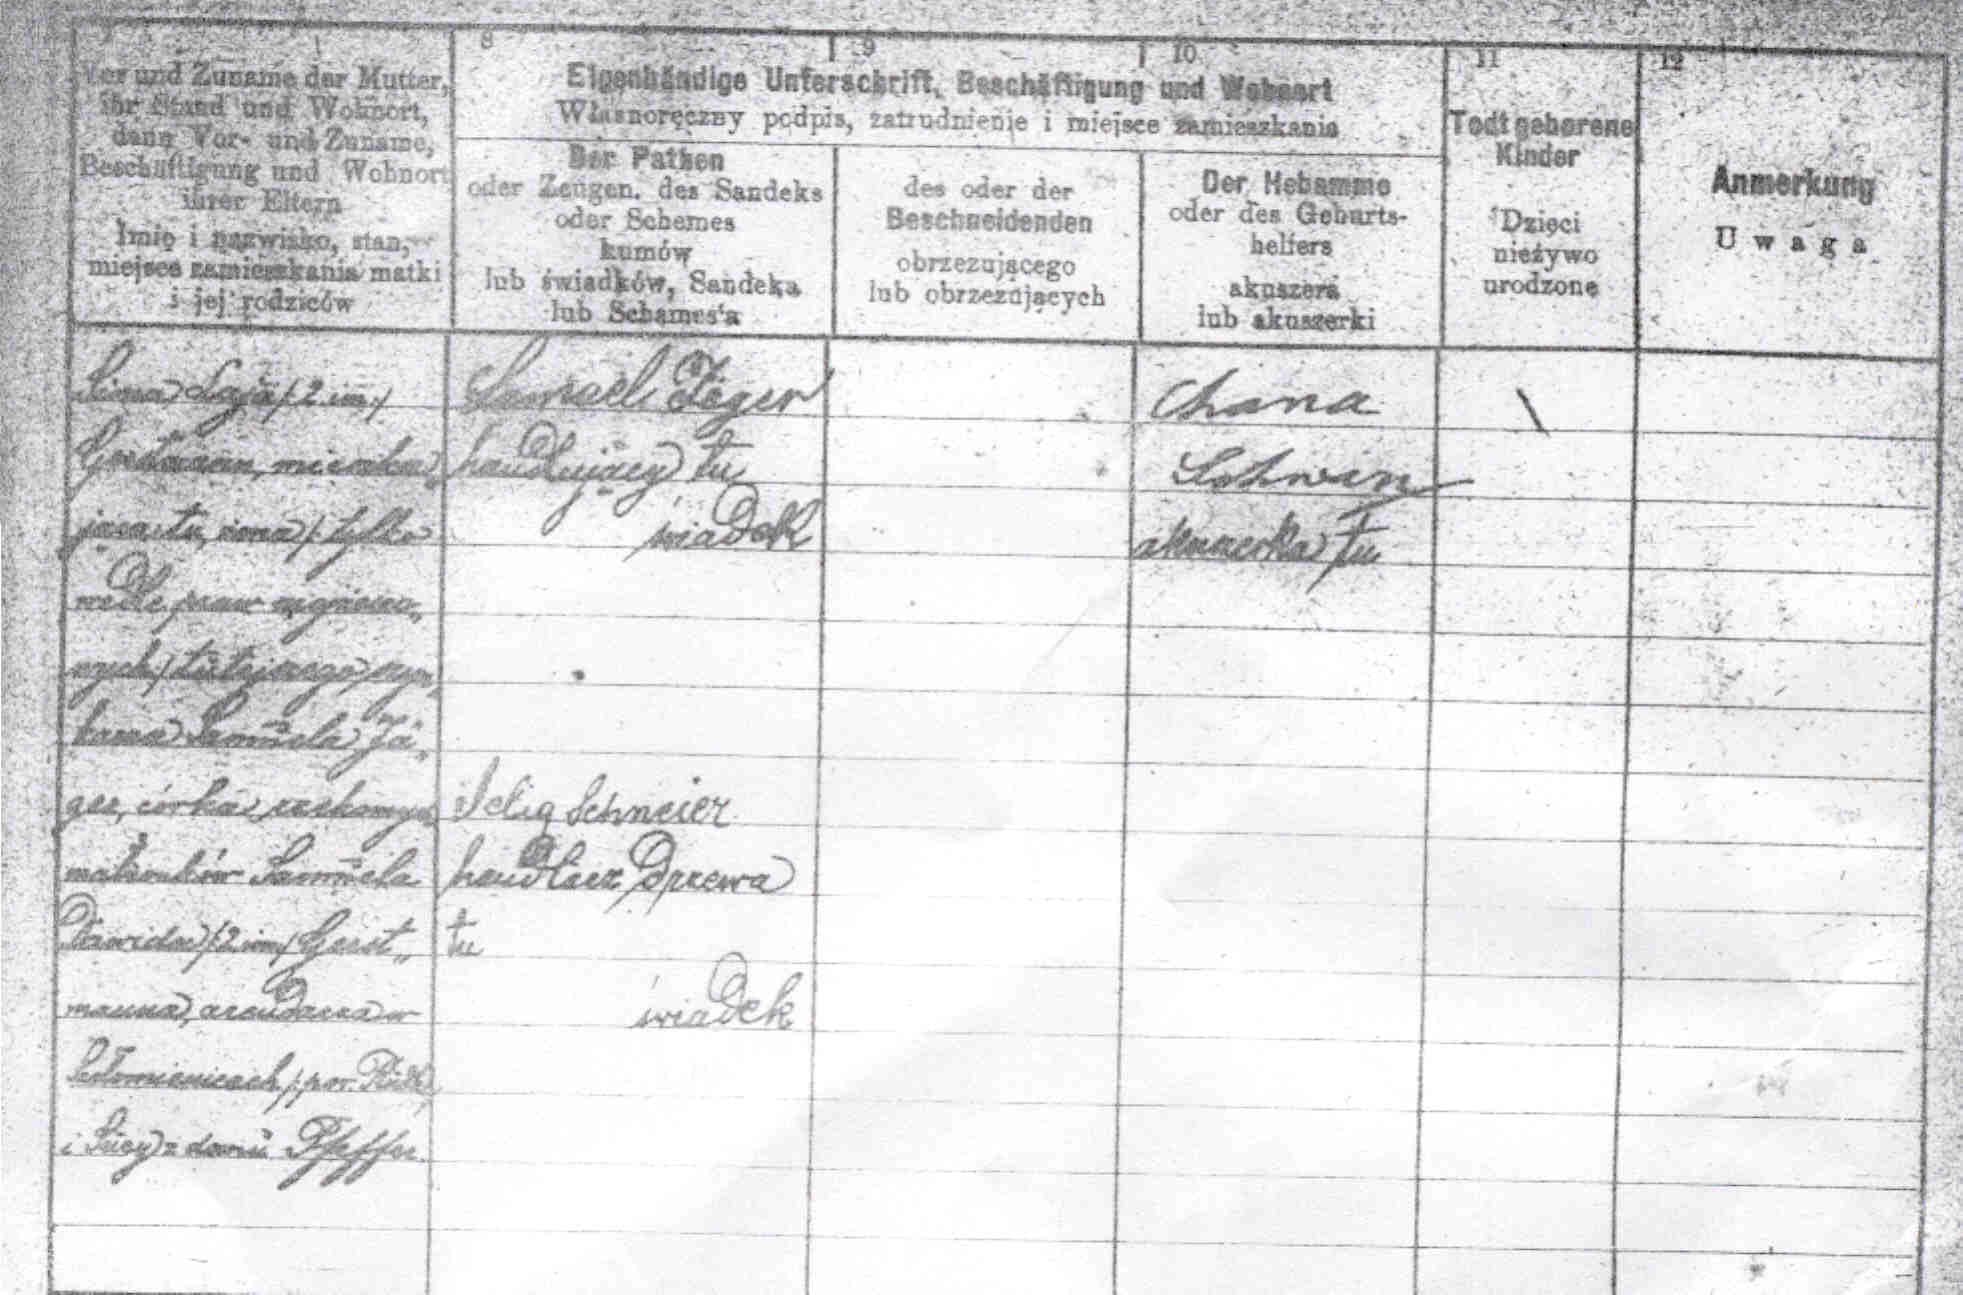 7
Vor und Zuname der Mutter,
ihr Stand und Wohnort,
dann Vor- und Zuname,
Beschäftigung und Wohnort
ihrer Eltern
Imię i nazwisko, stan,
miejsce zamieszkania matki
i jej rodziców
8
9
10
Eigenhändige Unterschrift, Beschäftigung und Wohnort
Własnoręczny podpis, zatrudnienie i miejsce zamieszkania
Der Pathen
oder Zeugen. des Sandeks
oder Schemes
kumów
lub świadków, Sandeka
lub Schames'a
des oder der
Beschneidenden
obrzezującego
lub obrzezujących
Der Hebamme
oder des Geburts-
helfers
akuszera
lub akuszerki
11
Todtgeborene
Kinder
Dzieci
nieżywo
urodzone
12
Anmerkung
Uwaga
Laja /: 2 im./
mieszka„
jąca tu, żona /: tylko
wedle praw
nych/ tutejszego
Samuela Jä„
ger, córka
małżonków Samuela
Dawida /: 2 im/ Gerst„
manna, arendarza w
/: pow.
i z domu Pfeffer
Samuel Jäger
handlujący tu
świadek
Selig Schneier
handlarz drzewa
tu
świadek
Chana
akuszerka tu